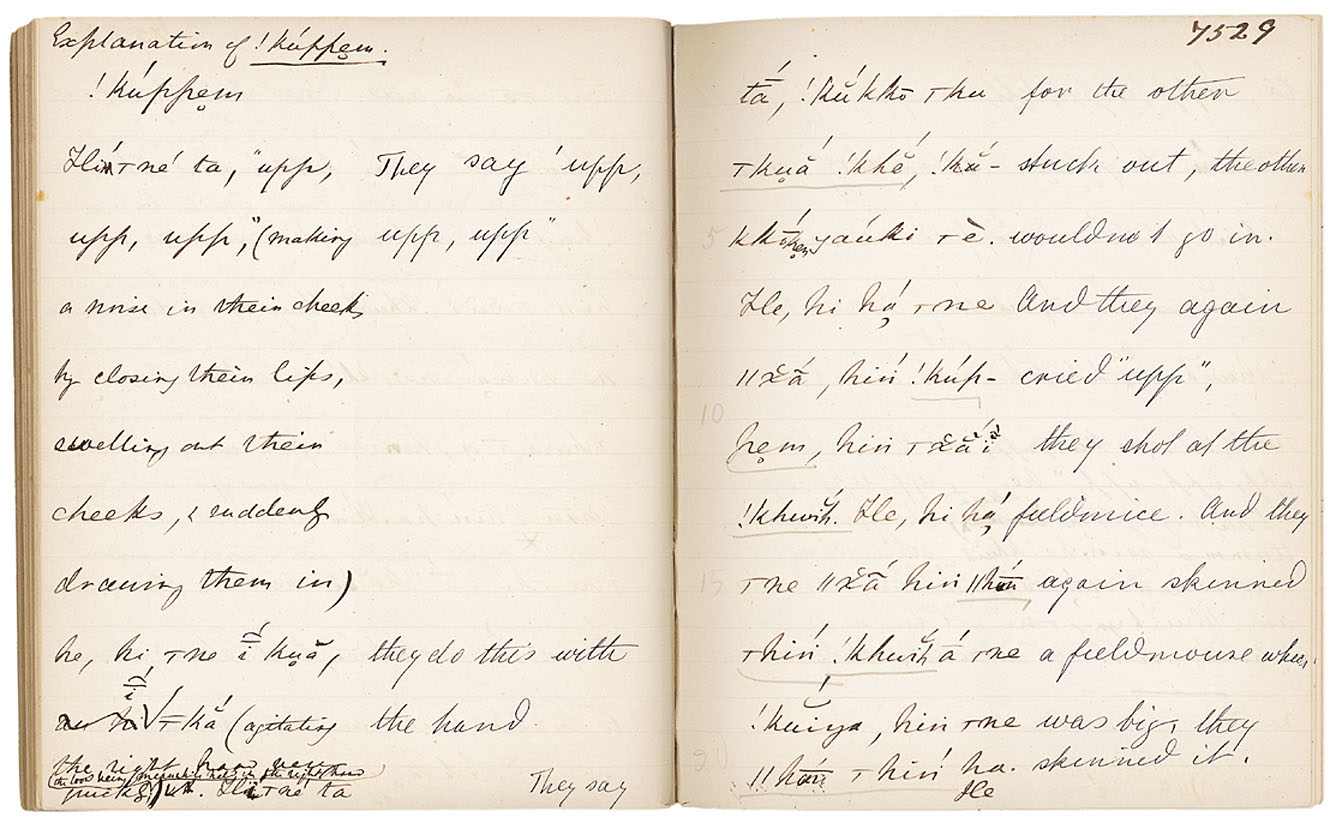 Explanation of !kúppẹm.
!kúppẹm
ta, "upp, They say 'upp,
upp, upp," (making upp, upp"
a noise in their cheeks
by closing their lips,
swelling out their
cheeks, & suddenly
drawing them in)
he, hi ₸ne í kụă, they do this with
₸ká (agitating the hand.
the right hand very
quickly) ta They say
7529
tā́, !kúkkō ₸ku for the other
₸kụá !khé, !kŭ- stuck out, the other
5 yaúki ₸è. would not go in.
He, hi há ₸ne And they again
ǁx̆ā́, hiń !kúp- cried "upp",
10
pẹm, hiń they shot at the
!khwĭh. He, hi há fieldmice. And they
15 ₸ne ǁx̆ā́ hiń ǁhań again skinned
₸hiń !khwĭh á ₸ne a fieldmouse which
!kúïya, hiń ₸ne was big, they
20 ǁhań ₸hiń ha. skinned it.
He